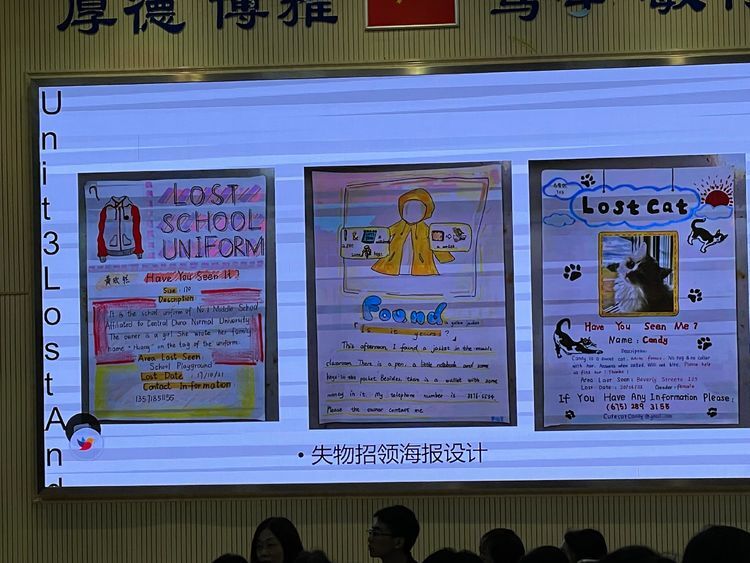 厚德 博雅
Unit3LostAnd
LOST
SCHOOL
UNIFORM
Have You Seen It?
Size: 170
Description
It is the school uniform of No.1 Middle School
Affiliated to Central China Normal University
The owner is a girl. She wrote her family
name "Huang" on the tag of the uniform.
Area Lost Seen
School Playground
Lost Date: 17/10/21
Contact Information
13571851155
Found
a yellow jacket
Is it yours?
This afternoon, I found a jacket in the music
classroom. There is a pen, a little notebook and some
keys in the pocket. Besides, there is a wallet with some
money in it. My telephone number is 8876-5654
Please the owner contact me
Lost Cat
Have You Seen Me?
Name: Candy
Description:
Candy is a sweet cat. White female. No tag & no collar
with her. Answers when called. Will not bite. Please help
us find her! Thanks!
Area Last Seen: Beverly Streets 109
Gender: female
If You Have Any Information Please:
(675) 289 3155
• 失物招领海报设计